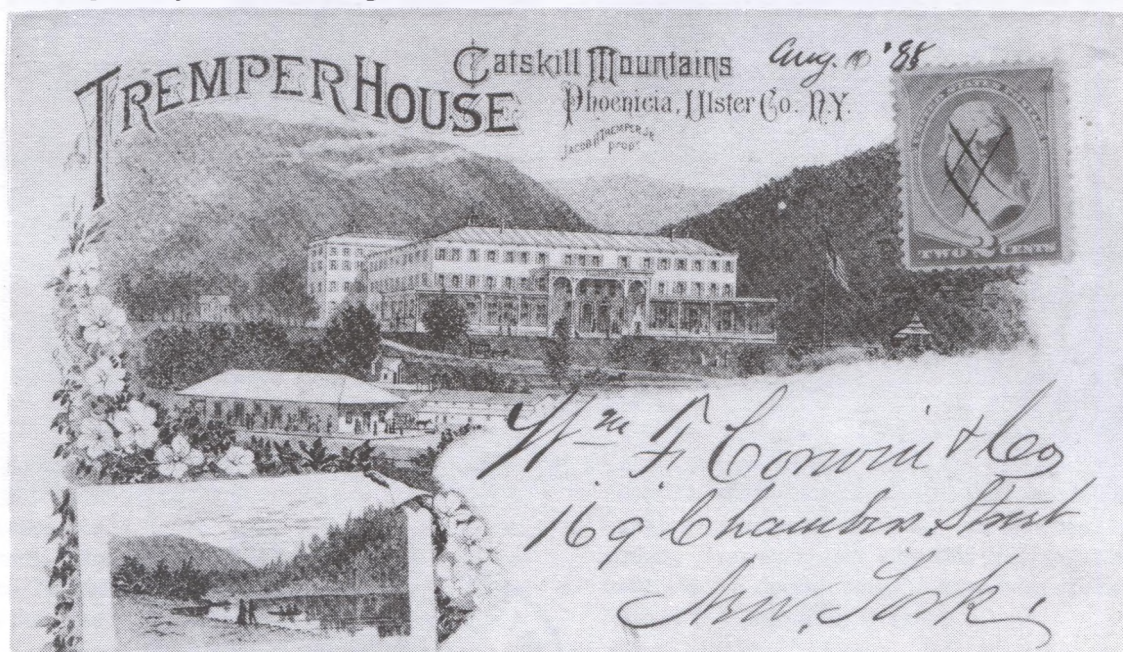 TREMPER HOUSE
Catskill Mountains
Phoenicia, Ulster Co. N.Y.
JACOB H. TREMPER JR.
Propr.
Aug. '88
UNITED STATES POSTAGE
TWO 2 CENTS
Wm F. Corwin & Co
169 Chambers Street
New York.